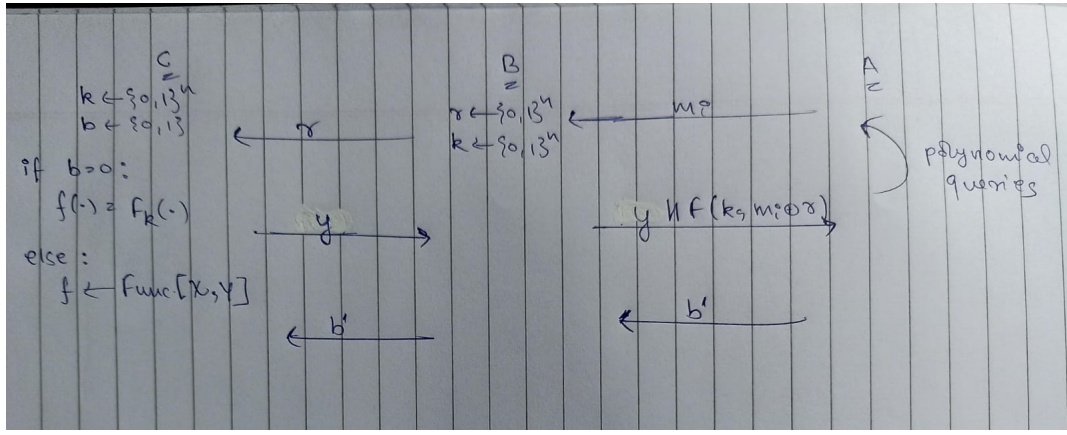 C
k ← {0,1}ⁿ
b ← {0,1}
if b=0:
f(·) = Fₖ(·)
else :
f ← Func[X,Y]
r
y
b'
B
r ← {0,1}ⁿ
k ← {0,1}ⁿ
mᵢ
y || F(k, mᵢ⊕r)
b'
A
polynomical
queries